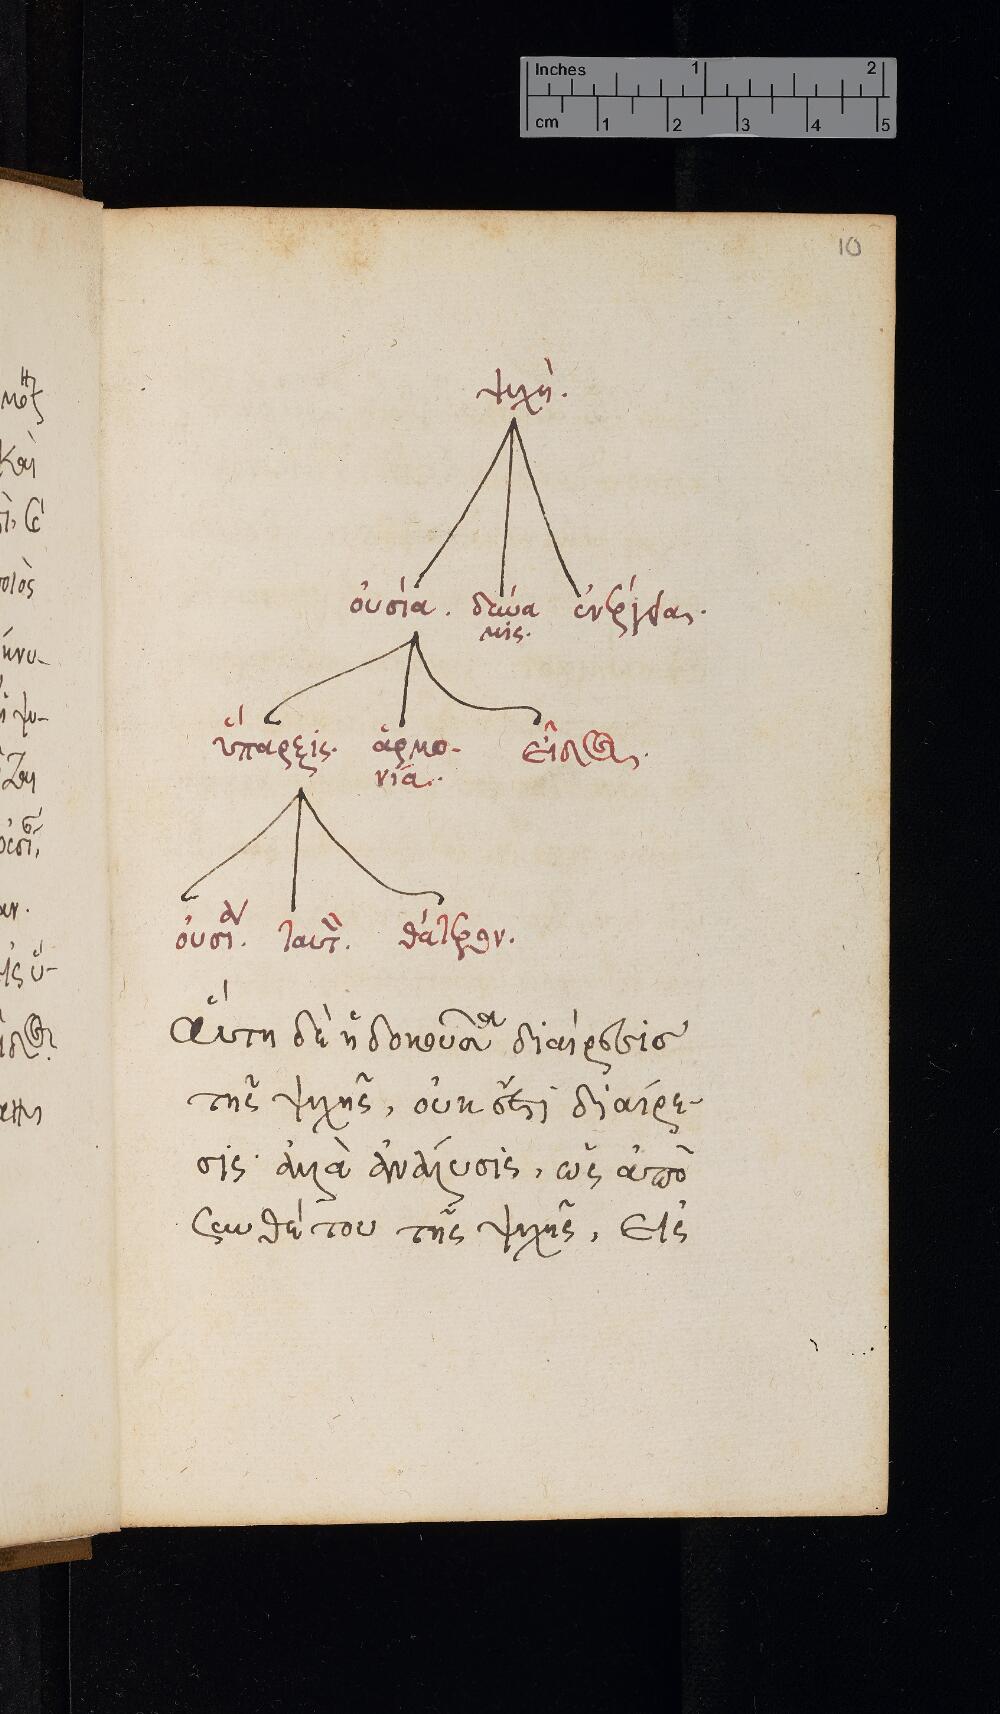 Inches 1 2
cm 1 2 3 4 5
10
ψυχή.
οὐσία. δύνα
μις. ἐνέργεια.
ὕπαρξις. ἁρμο-
νία. εἶδος.
οὐσία. ταυτὸν. θάτερον.
Αὕτη δὲ ἡ δοκοῦσα διαίρεσις
τῆς ψυχῆς, οὐκ ἔστι διαίρε-
σις· ἀλλὰ ἀνάλυσις, ὡς ἀπὸ
συνθέτου τῆς ψυχῆς, εἰς